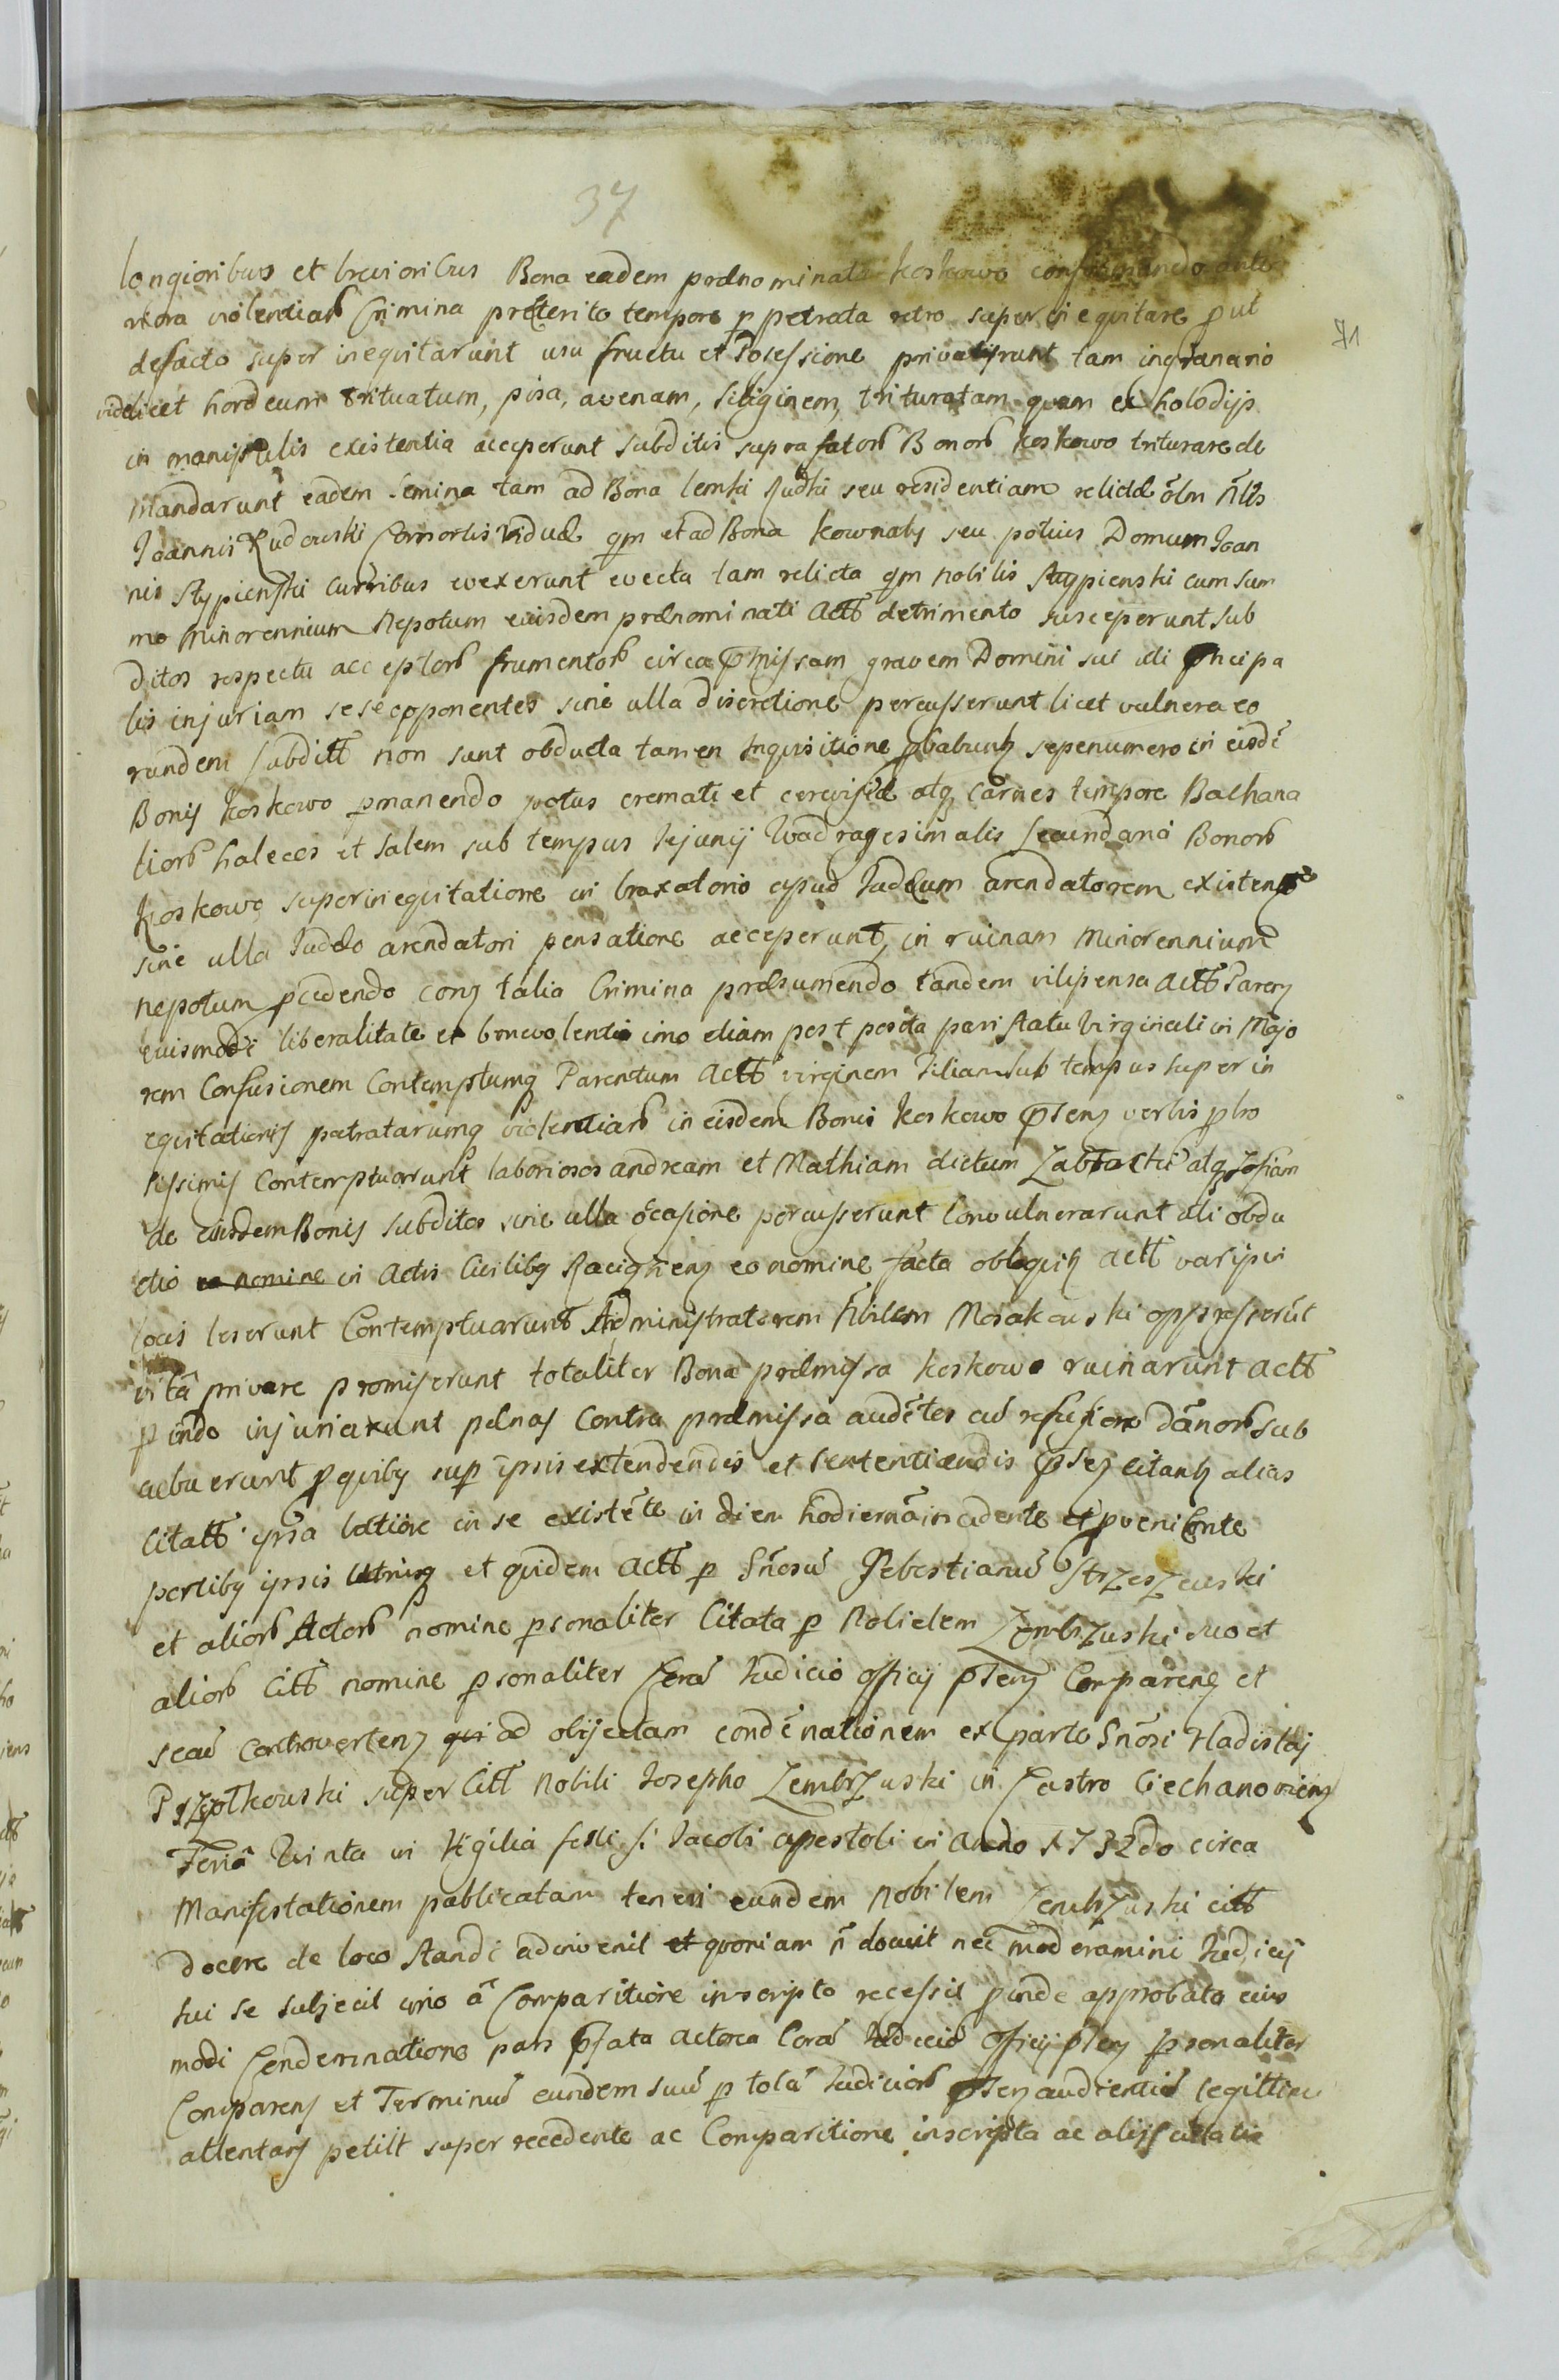 37
71
longioribus et brevioribus Bona eadem prænominata Koskowo
riora violentiarb Crimina præterito tempore p petrata retro super in equitare put
defacto super inequitarunt usu fructu et Posessione privaverunt tam ingranario
videlicet hordeum trituratum, pisa, avenam, siliginem, trituratam quam ex holodijs
in manipulis existentia acceperunt subditis suprafatorb Bonorb Koskowo triturare de
mandarunt eadem semina tam ad Bona lemki Rudki seu residentiam relictæ olm nblis
Joannis Rudowski Consortis viduæ qm et ad Bona Kownaty seu potius Domum Joan
nis Stypienski curribus evexerunt evecta tam relicta qm nobilis Stypienski cum sum
mo minorennium Nepotum eiusdem prænominati Actt detrimento susceperunt sub
ditos respectu acceptorb frumentorb circa pmissam gravem Domini sui uti pncipa
lis injuriam sese opponentes sine ulla discretione percusserunt licet vulnera eo
rundem subditt non sunt obducta tamen Inquisitione pbabunt sepenumero in eisde
Bonis Koskowo pmanendo potus cremati et cerevisiæ atq carnes tempore Bachana
liorb haleces et salem sub tempus Jejunij Quadragesimalis secundaria Bonorb
Koskowo superinequitatione in braxatorio apud Judæum arendatorem existen
sine ulla Judæo arendatori pensatione acceperunt, in ruinam Minorennium
nepotum pcedendo conq talia Crimina præsumendo tandem vilipensa Actt Paren
euismodi liberalitate et benevolentia imo etiam post posita pari statu virginali in Majo
rem Confusionem Contemptumq Parentum Actt virginem Filiam sub tempus super in
equitationis patratarumq violentiarb in eisdem Bonis Koskowo pnsen verbis pbro
sissimis Contemptuarunt laboriosos andream et Mathiam dictum Zabłocki atq Zofiam
de eiisdem Bonis subditos sine ulla ocasione percusserunt Convulnerarunt uti obdu
ctio eo nomine in Actis Civilibq Raciązen eo nomine facta obloquis Actt varijs in
locis leserunt Contemptuarunt Administratorem Nbilem Mosakowski oppresserut
vita privare promiserunt totaliter Bona præmissa Koskowo ruinarunt Actt
p inde injuriarunt pænas Contra præmissa audetes cu refusione damnorb sub
cubuerunt p quibq sup ipsis extendendis et sententiandis pnsen citant alias
Citatt ipsa latione in se existete in diem hodierna incidente et pveniente
partibq ipsis utrisq et quidem Actt p Gnosu Sebestianu Strzeszewski
et aliorb Actorb nomine psonaliter Citata p Nobilem Zembrzuski suo et
aliorb Citt nomine psonaliter Cora Judicio officij pnsen Comparen et
secu Controverten qui ad objectam condenationem ex parte Gnosi Vladislai
Przepałkowski super Citt Nobili Josepho Zembrzuski in Castro Ciechanovien
Feria Quinta in Vigilia festi S. Jacobi apostoli in Anno 1732do circa
Manifestationem publicatam teneri eundem nobilem Zembrzuski citt
docere de loco standi adinvenit et quoniam n docuit nec moderamini Judicij
sui se subjecit imo a Comparitione inscripto recessit pinde approbata eius
modi Condemnatione pars pfata actorea Cora Judicio officij pnsen psonaliter
Comparens et Terminu eundem suu p tota Judiciorb pnsen audientia legittime
attentans petiit super recedente ac Comparitione inscripta ac alijs citatis